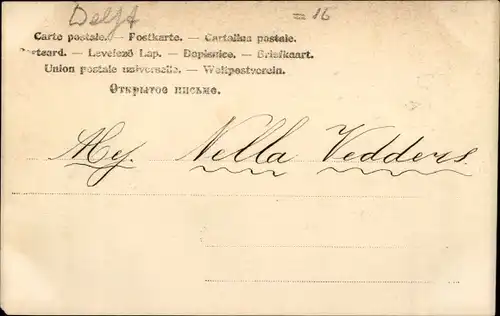 Delft =16
Carte postale. — Postkarte. — Cartolina postale.
Postcard. — Levelező Lap. — Dopisnice. — Briefkaart.
Union postale universelle. — Weltpostverein.
Открытое письмо.
Mej. Nella Vedders.